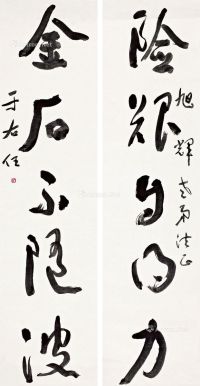 險艱自得力
旭輝老弟法正
金石不隨波
于右任